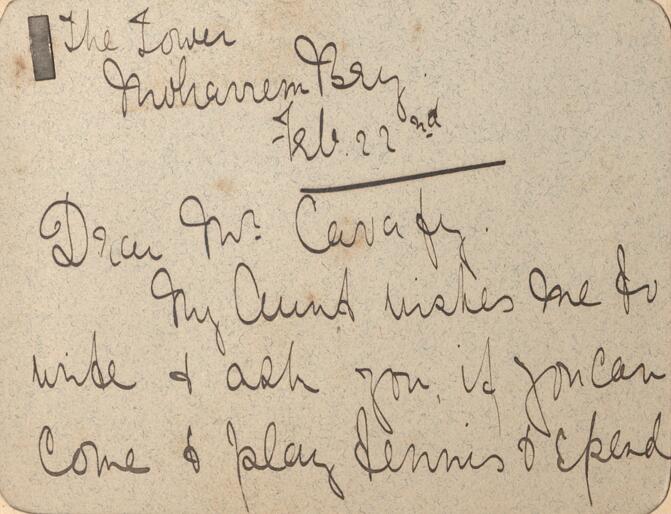 The Tower
Moharrem Bey.
Feb. 22nd
Dear Mr. Cavafy.
My Aunt wishes me to
write & ask you, if you can
come & play tennis & spend